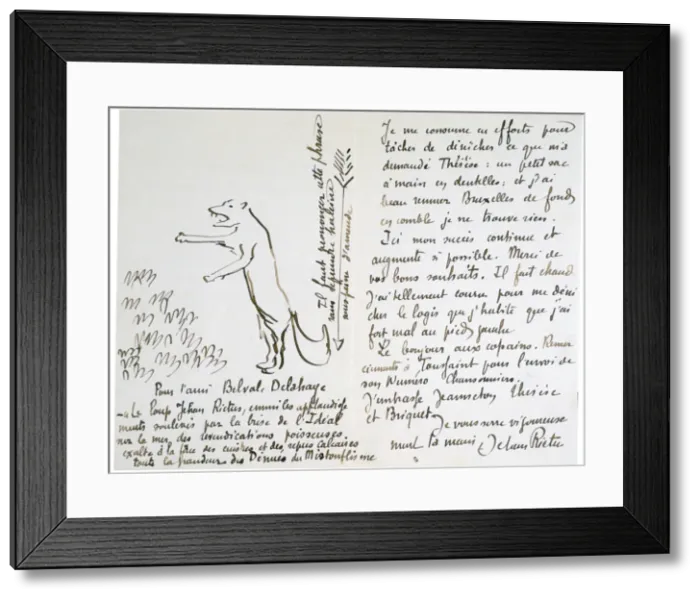 Il faut prononcer cette phrase
sans reprendre haleine
sous peine d'amende
Pour l'ami Belval-Delahaye
Le Loup Jehan Rictus, emmi les applaudisse
ments soulevés par la brise de l'Idéal
sur la mer des revendications poisseuses
exalte à la face des cuistres et des repus
toute la grandeur des Dénués du Mistouflisme
Je me consume en efforts pour
tâcher de dénicher ce que m'a
demandé Thérèse : un petit sac
à main en dentelles ; et j'ai
beau remuer Bruxelles de fond
en comble je ne trouve rien.
Ici mon succès continue et
augmente si possible. Merci de
vos bons souhaits. Il fait chaud
J'ai tellement couru pour me déni
cher le logis que j'habite que j'ai
fort mal au pied gauche
Le bonjour aux copains. Remer
ciements à Toussaint pour l'envoi de
son Numéro Chansonniers.
J'embrasse Jeanneton Thérèse
et Briquet
Je vous serre vigoureuse
ment la main Jehan Rictus